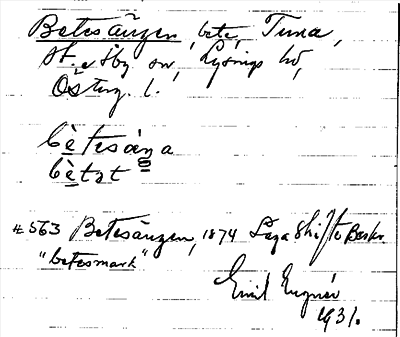 Betesängen, bete, Tuna,
St. Åby sn, Lysings hd,
Österg. l.
bètesäŋa
bètət
# 563 Betesängen, 1874 Laga Skifte Beskr.
"betesmark"
Emil Eugner
1931.